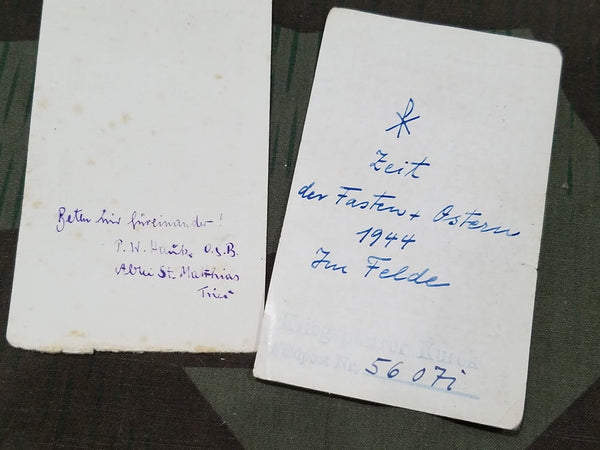 Beten wir füreinander!
P. W. O.S.B.
Abtei St. Matthias
Trier
Zeit
der Fasten + Ostern
1944
Im Felde
Kriegspfarrer
Feldpost Nr. 56071